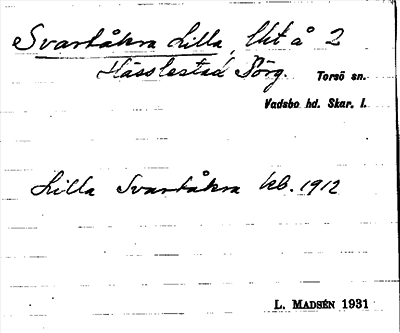 Svartåkra Lilla, lht å 2
Hässlestad Börg. Torsö sn.
Vadsbo hd. Skar. l.
Lilla Svartåkra kb. 1912
L. MADSÉN 1931